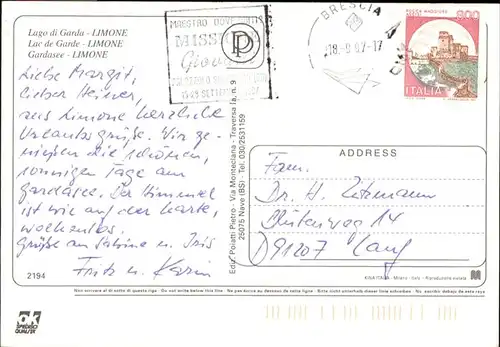 Lago di Garda - LIMONE
Lac de Garde - LIMONE
Gardasee - LIMONE
Liebe Margit,
lieber Heiner,
aus Limone herzliche
Urlaubsgrüße. Wir ge-
nießen die schönen,
sonnigen Tage am
Gardasee. Der Himmel
ist wie auf der Karte,
wolkenlos.
Grüße an Sabine u. Iris
Fritz u. Karin
2194
MAESTRO DOVE
MISS
Giov
P
BRESCIA
18-9 97-17
800
ITALIA
Ediz. Polatti Pietro - Via Monteclana - Traversa Ia, n. 9
25075 Nave (BS) - Tel. 030/2531159
ADDRESS
Fam.
Dr. H.
14
D 91207 Lauf
KINA ITALIA - Milano - Italy - Riproduzione vietata
Non scrivere al di sotto di questa riga - Ne pas écrire au dessous de cette ligne - Bitte nicht unterhalb dieser Linie schreiben - No escribir debajo de esta raya
OK
SPEDISCI
QUALITÀ